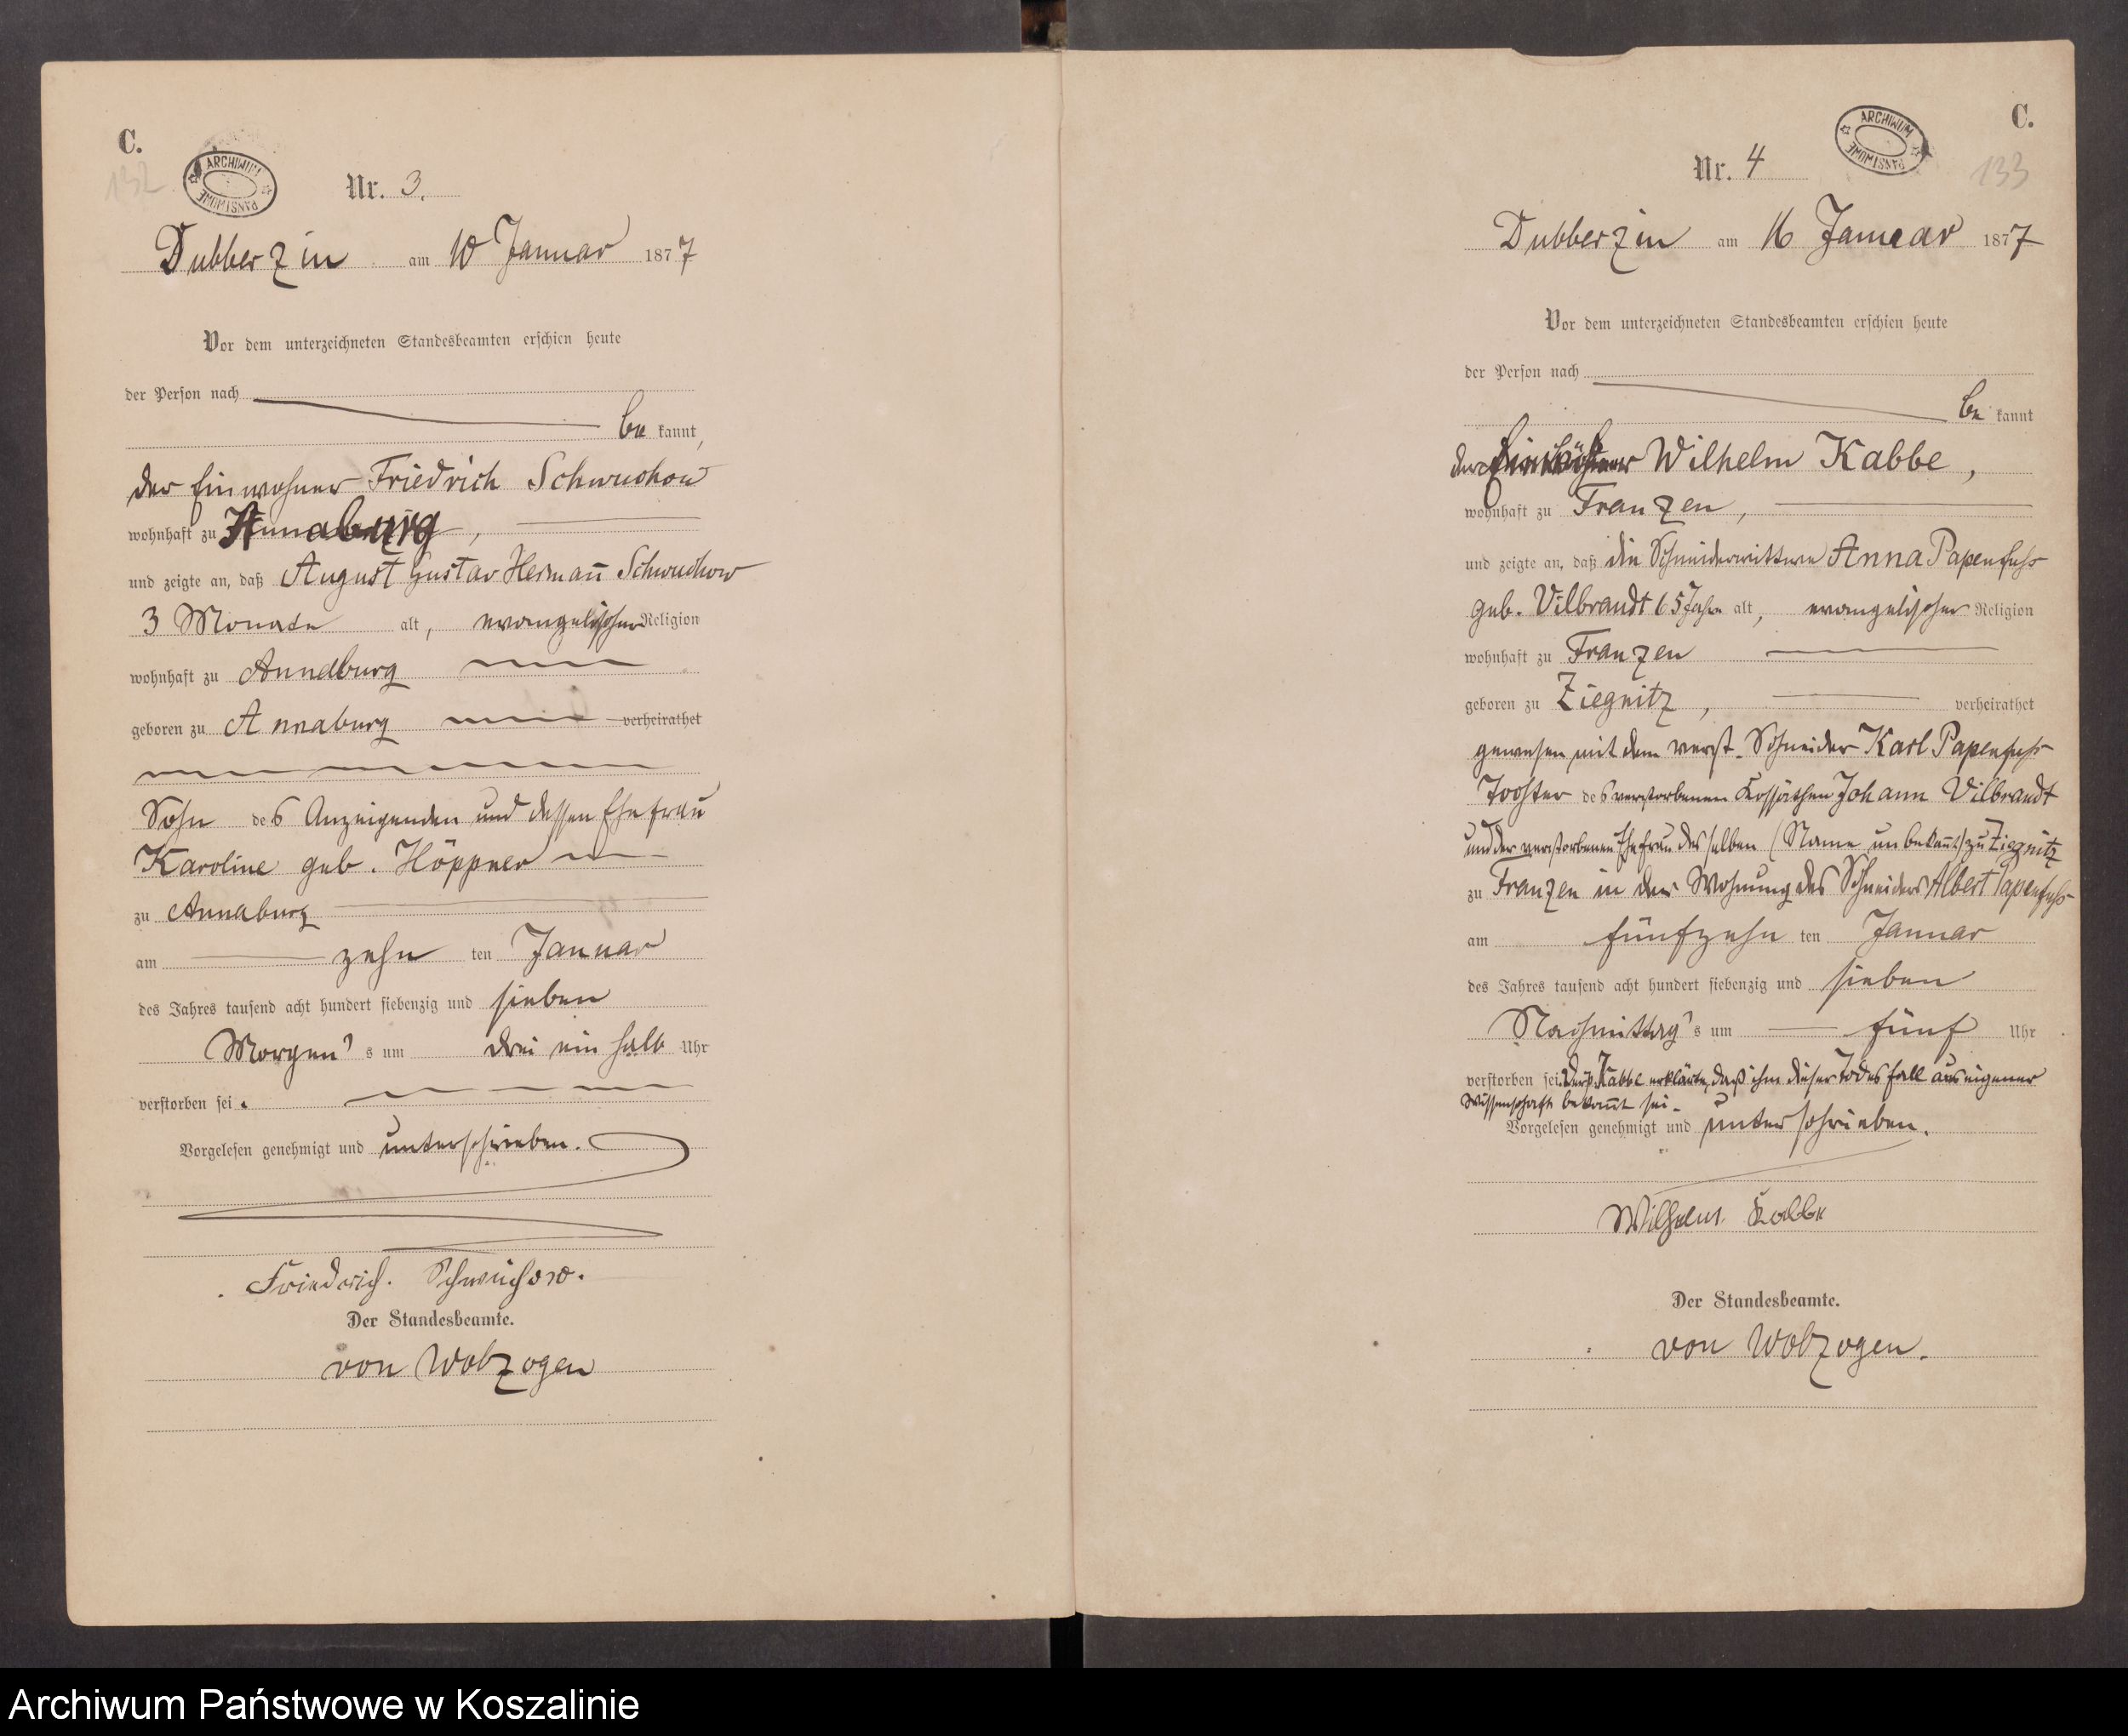 C.
132
ARCHIWUM PAŃSTWOWE
Nr. 3.
Dubberzin am 10 Januar 1877
Vor dem unterzeichneten Standesbeamten erschien heute
der Person nach
be kannt,
der Einwohner Friedrich Schwuchow
wohnhaft zu Annaburg,
und zeigte an, daß August Gustav Hermann̄ Schwuchow
3 Monate alt, evangelischer Religion
wohnhaft zu Annaburg
geboren zu Annaburg verheirathet
Sohn des Anzeigenden und dessen Ehefrau
Karoline geb. Höppner
zu Annaburg
am zehn ten Januar
des Jahres tausend acht hundert siebenzig und sieben
Morgen's um drei ein halb Uhr
verstorben sei.
Vorgelesen genehmigt und unterschrieben.
Friedrich. Schwuchow.
Der Standesbeamte.
von Wolzogen
C.
133
ARCHIWUM PAŃSTWOWE
Nr. 4
Dubberzin am 16 Januar 1877
Vor dem unterzeichneten Standesbeamten erschien heute
der Person nach
be kannt
der Wilhelm Kabbe,
wohnhaft zu Franzen,
und zeigte an, daß die Schneiderwittwe Anna Papenfuss
geb. Vilbrandt 65 Jahre alt, evangelischer Religion
wohnhaft zu Franzen
geboren zu Ziegnitz, verheirathet
gewesen mit dem verst. Schneider Karl Papenfuss
Tochter des verstorbenen Kossäthen Johann Vilbrandt
und der verstorbenen Ehefrau desselben (Name unbekannt) zu Ziegnitz
zu Franzen in der Wohnung des Schneiders Albert Papenfuss
am fünfzehn ten Januar
des Jahres tausend acht hundert siebenzig und sieben
Nachmittag's um fünf Uhr
verstorben sei. Der p. Kabbe erklärte, daß ihm dieser Todesfall aus eigener
Wissenschaft bekannt sei.
Vorgelesen genehmigt und unterschrieben.
Wilhelm Kabbe
Der Standesbeamte.
von Wolzogen.
Archiwum Państwowe w Koszalinie